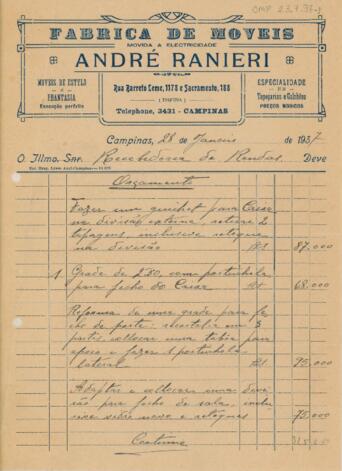 CMP 23.7.33-2
FABRICA DE MOVEIS
MOVIDA A ELECTRICIDADE
ANDRÉ RANIERI
MOVEIS DE ESTYLO
E
PHANTASIA
Execução perfeita
Rua Barreto Leme, 1178 e Sacramento, 188
Telephone, 3431 - CAMPINAS
ESPECIALIDADE
EM
Tapeçarias e Colchões
PREÇOS MODICOS
Campinas, 28 de Janeiro de 1937
O Illmo. Snr. Recebedoria de Rendas. Deve
Orçamento
Fazer um guichet para Caixa
na divisão externa,
tapagens inclusive retoques
na divisão 87.000
1 Grade de 2.80, com portinhola
para fecho do Caixa 68.000
Reforma de uma grade para fe
cho de porta: em 3
partes, collocar uma taboa para
apoio e fazer 1 portinhola
lateral 75.000
Adaptar e collocar uma divi
são para fecho de sala, inclu
sive vidro novo e retoques 75.000